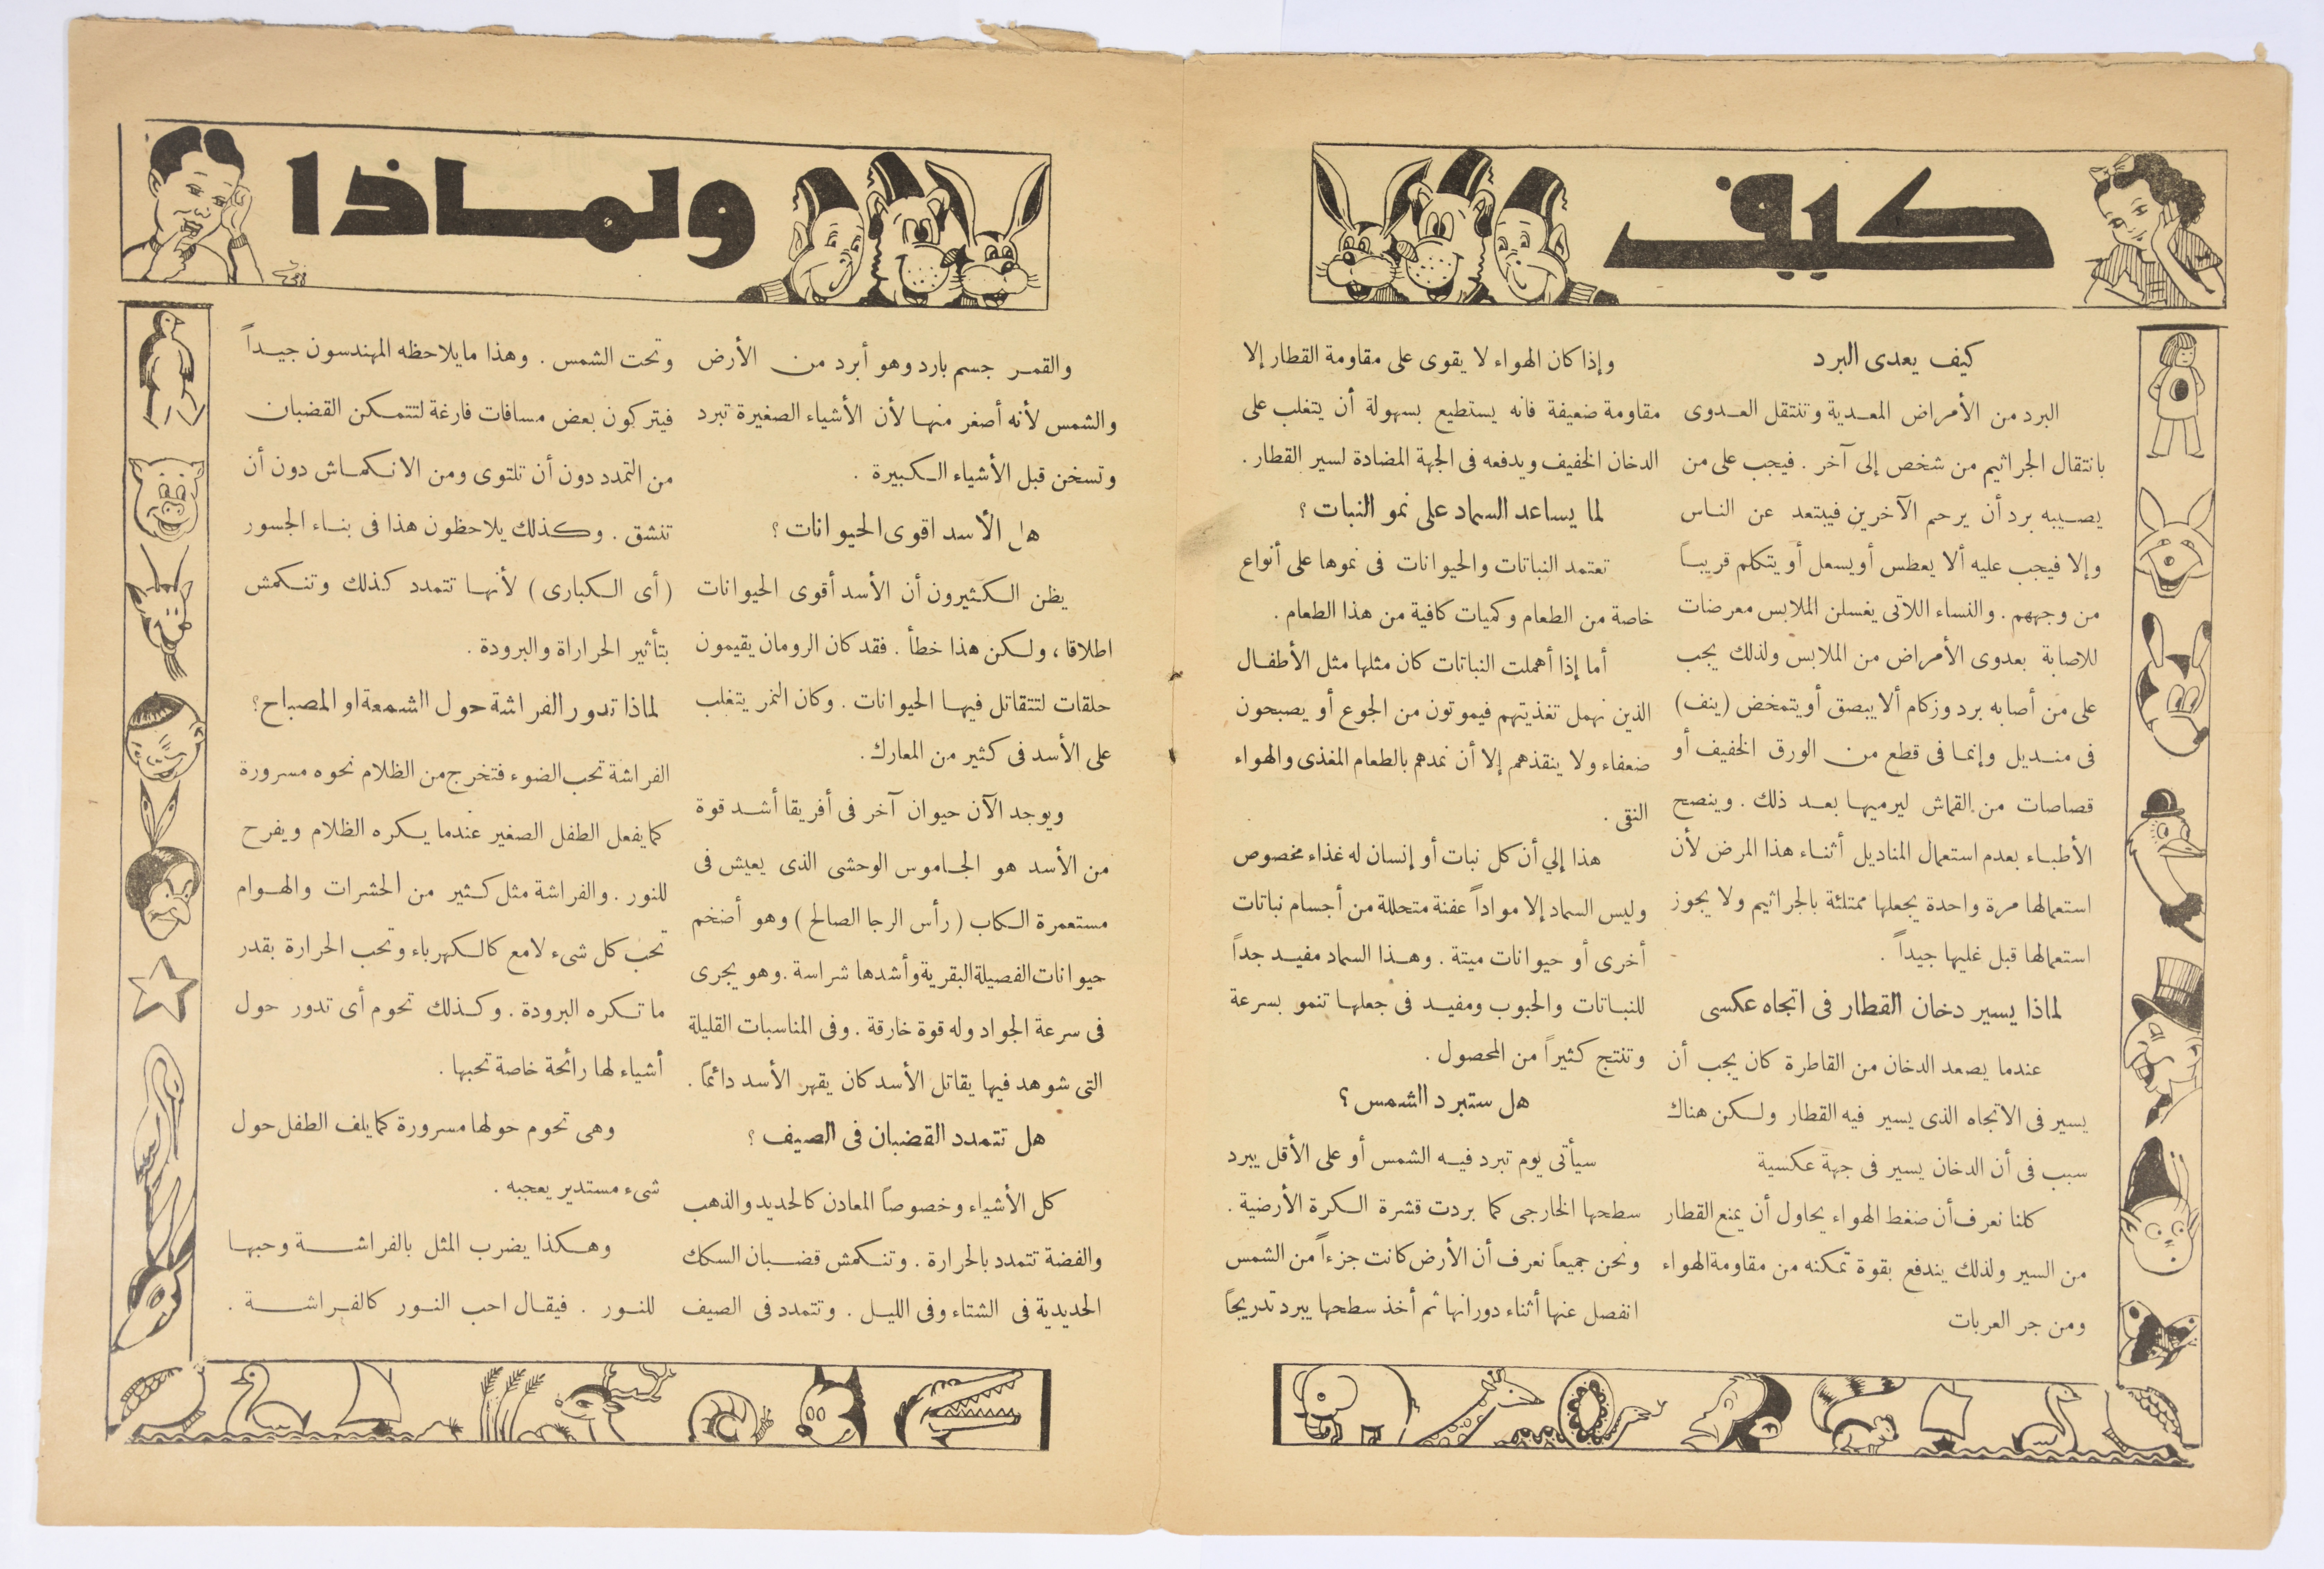 كيف
كيف يعدى البرد
البرد من الأمراض المعدية وتنتقل العدوى
بانتقال الجراثيم من شخص إلى آخر . فيجب على من
يصيبه برد أن يرحم الآخرين فيبتعد عن الناس
وإلا فيجب عليه ألا يعطس أو يسعل أو يتكلم قريباً
من وجههم . والنساء اللاتى يغسلن الملابس معرضات
للاصابة بعدوى الأمراض من الملابس ولذلك يجب
على من أصابه برد وزكام ألا يبصق أو يتمخض (ينف)
فى منديل وإنما فى قطع من الورق الخفيف أو
قصاصات من القماش ليرميها بعد ذلك . وينصح
الأطباء بعدم استعمال المناديل أثناء هذا المرض لأن
استعمالها مرة واحدة يجعلها ممتلئة بالجراثيم ولا يجوز
استعمالها قبل غليها جيداً .
لماذا يسير دخان القطار فى اتجاه عكسى
عندما يصعد الدخان من القاطرة كان يجب أن
يسير فى الاتجاه الذى يسير فيه القطار ولكن هناك
سبب فى أن الدخان يسير فى جهة عكسية
كلنا نعرف أن ضغط الهواء يحاول أن يمنع القطار
من السير ولذلك يندفع بقوة تمكنه من مقاومة الهواء
ومن جر العربات
وإذا كان الهواء لا يقوى على مقاومة القطار إلا
مقاومة ضعيفة فانه يستطيع بسهولة أن يتغلب على
الدخان الخفيف ويدفعه فى الجهة المضادة لسير القطار .
لما يساعد السماد على نمو النبات ؟
تعتمد النباتات والحيوانات فى نموها على أنواع
خاصة من الطعام وكميات كافية من هذا الطعام .
أما إذا أهملت النباتات كان مثلها مثل الأطفال
الذين نهمل تغذيتهم فيموتون من الجوع أو يصبحون
ضعفاء ولا ينقذهم إلا أن نمدهم بالطعام المغذى والهواء
النقى .
هذا إلي أن كل نبات أو إنسان له غذاء مخصوص
وليس السماد إلا مواداً عفنة متحللة من أجسام نباتات
أخرى أو حيوانات ميتة . وهذا السماد مفيد جداً
للنباتات والحبوب ومفيد فى جعلها تنمو بسرعة
وتنتج كثيراً من المحصول .
هل ستبرد الشمس ؟
سيأتى يوم تبرد فيه الشمس أو على الأقل يبرد
سطحها الخارجى كما بردت قشرة الكرة الأرضية .
ونحن جميعاً نعرف أن الأرض كانت جزءاً من الشمس
انفصل عنها أثناء دورانها ثم أخذ سطحها يبرد تدريجاً
ولماذا
والقمر جسم بارد وهو أبرد من الأرض
والشمس لأنه أصغر منها لأن الأشياء الصغيرة تبرد
وتسخن قبل الأشياء الكبيرة .
هل الأسد اقوى الحيوانات ؟
يظن الكثيرون أن الأسد أقوى الحيوانات
اطلاقا ، ولكن هذا خطأ . فقد كان الرومان يقيمون
حلقات لتتقاتل فيها الحيوانات . وكان النمر يتغلب
على الأسد فى كثير من المعارك .
ويوجد الآن حيوان آخر فى أفريقا أشد قوة
من الأسد هو الجاموس الوحشى الذى يعيش فى
مستعمرة الكاب ( رأس الرجا الصالح ) وهو أضخم
حيوانات الفصيلة البقرية وأشدها شراسة . وهو يجرى
فى سرعة الجواد وله قوة خارقة . وفى المناسبات القليلة
التى شوهد فيها يقاتل الأسد كان يقهر الأسد دائماً .
هل تتمدد القضبان فى الصيف ؟
كل الأشياء وخصوصاً المعادن كالحديد والذهب
والفضة تتمدد بالحرارة . وتنكمش قضبان السكك
الحديدية فى الشتاء وفى الليل . وتتمدد فى الصيف
وتحت الشمس . وهذا مايلاحظه المهندسون جيداً
فيتركون بعض مسافات فارغة لتتمكن القضبان
من التمدد دون أن تلتوى ومن الانكماش دون أن
تنشق . وكذلك يلاحظون هذا فى بناء الجسور
( أى الكبارى ) لأنها تتمدد كذلك وتنكمش
بتأثير الحراراة والبرودة .
لماذا تدور الفراشة حول الشمعة او المصباح ؟
الفراشة تحب الضوء فتخرج من الظلام نحوه مسرورة
كما يفعل الطفل الصغير عندما يكره الظلام ويفرح
للنور . والفراشة مثل كثير من الحشرات والهوام
تحب كل شىء لامع كالكهرباء وتحب الحرارة بقدر
ما تكره البرودة . وكذلك تحوم أى تدور حول
أشياء لها رائحة خاصة تحبها .
وهى تحوم حولها مسرورة كما يلف الطفل حول
شىء مستدير يعجبه .
وهكذا يضرب المثل بالفراشة وحبها
للنور . فيقال احب النور كالفراشة .